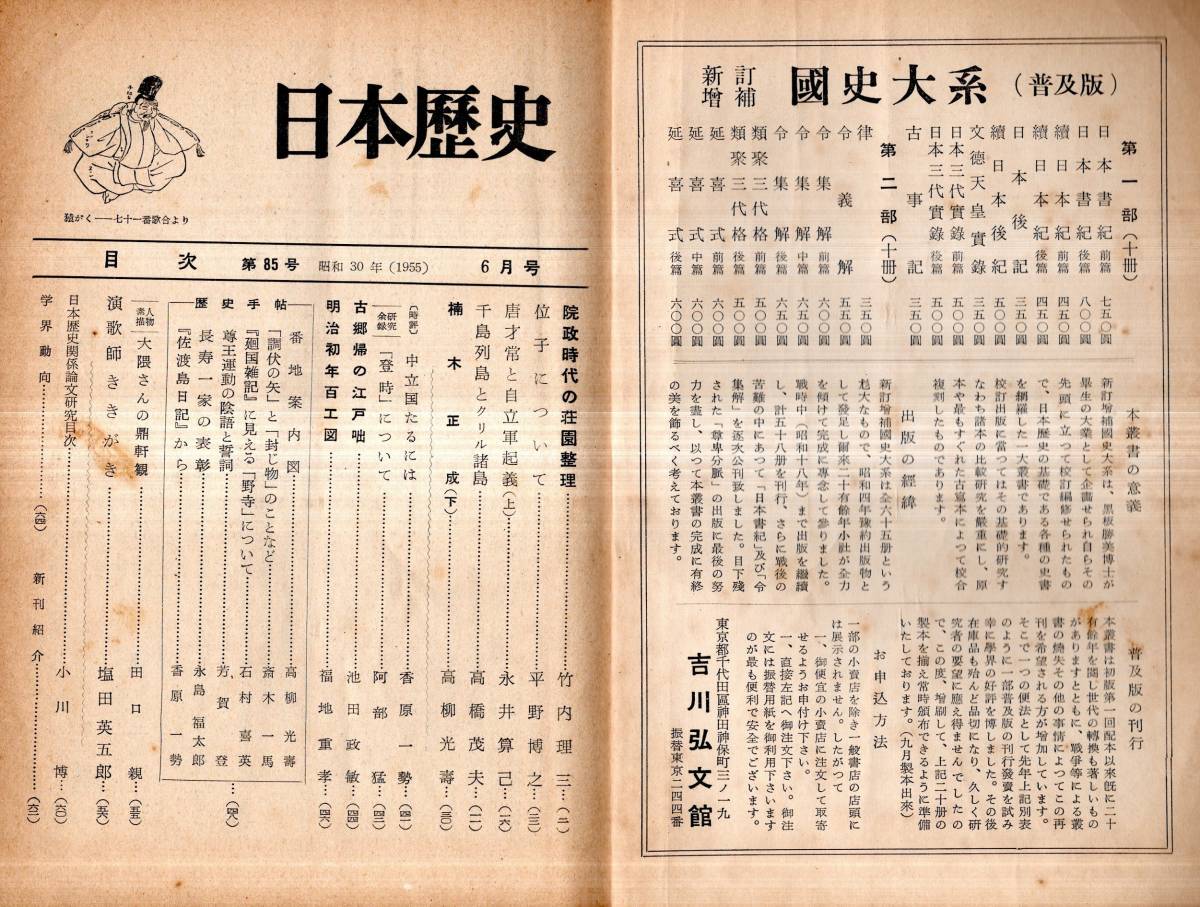 國史大系（普及版）
新訂
增補
第一部（十冊）
日本書紀 前篇 七五〇圓
日本書紀 後篇 八〇〇圓
續日本紀 前篇 四五〇圓
續日本紀 後篇 四五〇圓
日本後記 三五〇圓
續日本後紀 五〇〇圓
文德天皇實錄 五〇〇圓
日本三代實錄 前篇 五〇〇圓
日本三代實錄 後篇 五〇〇圓
古事記 三五〇圓
第二部（十冊）
律 三五〇圓
令義解 五五〇圓
令集解 前篇 六〇〇圓
令集解 中篇 五五〇圓
令集解 後篇 五五〇圓
類聚三代格 前篇 五五〇圓
類聚三代格 後篇 五五〇圓
延喜式 前篇 六〇〇圓
延喜式 中篇 五〇〇圓
延喜式 後篇 六〇〇圓
本叢書の意義
新訂增補國史大系は、黒板勝美博士が
畢生の大業として企畫せられ自らその
先頭に立つて校訂編修せられたもの
で、日本歷史の基礎である各種の史書
を網羅した一大叢書であります。
校訂出版に當つてはその基礎的研究す
なわち諸本の比較研究を嚴重にし、原
本や最もすぐれた古寫本によつて校合
複刻したものであります。
出版の經緯
新訂增補國史大系は全六十五册という
尨大なもので、昭和四年豫約出版物と
して發足し爾來二十有餘年小社が全力
を傾けて完成に專念して參りました。
戰時中（昭和十八年）まで出版を繼續
し、計五十八册を刊行、さらに戰後の
苦難の中にあつて「日本書紀」及び「令
集解」を逐次公刊致しました。目下殘
された「尊卑分脈」の出版に最後の努
力を盡し、以つて本叢書の完成に有終
の美を飾るべく考えております。
普及版の刊行
本叢書は初版第一回配本以來旣に二十
有餘年を閲し世代の轉換も著しいもの
がありますとともに、戰爭等による叢
書の燒失その他の事情によつてこの再
刊を希望される方が增加しています。
そこで一つの便法として先年上記別表
のように一部普及版の刊行發賣を試み
幸に學界の好評を博しました。その後
在庫品も殆んど品切になり、久しく研
究者の要望に應え得ませんでしたの
で、この度、增刷して、上記二十册の
製本を揃え常時頒布できるように準備
いたしております。（九月製本出來）
お申込方法
一部の小賣店を除き一般書店の店頭に
は展示されません。したがつて
一、御便宜の小賣店に注文して取寄
せるようお申付け下さい。
一、直接左記へ御注文下さい。御注
文には振替用紙を御利用下さいます
が最も便利で安全でございます。
東京都千代田區神田神保町三ノ一九
吉川弘文館
振替東京二四四番
日本歷史
猿がく——七十一番歌合より
目次 第85号 昭和30年（1955） 6月号
院政時代の荘園整理 竹内理三（二）
位子について 平野博之（三）
唐才常と自立軍起義（上） 永井算己（六）
千島列島とクリル諸島 高橋茂夫（二）
楠木正成（下） 高柳光壽（三〇）
〔時評〕 中立国たるには 香原一勢（四〇）
研究余録 「登時」について 阿部猛（四二）
古郷帰の江戸咄 池田政敏（四四）
明治初年百工図 福地重孝（四六）
歷史手帖
番地案内図 高柳光壽
「調伏の矢」と「封じ物」のことなど 斎木一馬
『廻国雑記』に見える「野寺」について 石村喜英
尊王運動の陰語と誓詞 芳賀登
長寿一家の表彰 永島福太郎
『佐渡島日記』から 香原一勢
（四八）
人物素描 大隈さんの鼎軒観 田口親（五五）
演歌師ききがき 塩田英五郎（五六）
日本歴史関係論文研究目次 小川博（六〇）
学界動向（六四） 新刊紹介（六二）